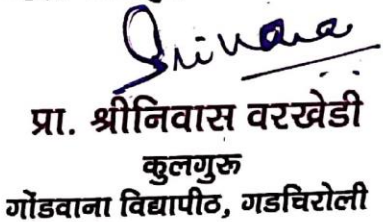 प्रा. श्रीनिवास वरखेडी
कुलगुरू
गोंडवाना विद्यापीठ, गडचिरोली